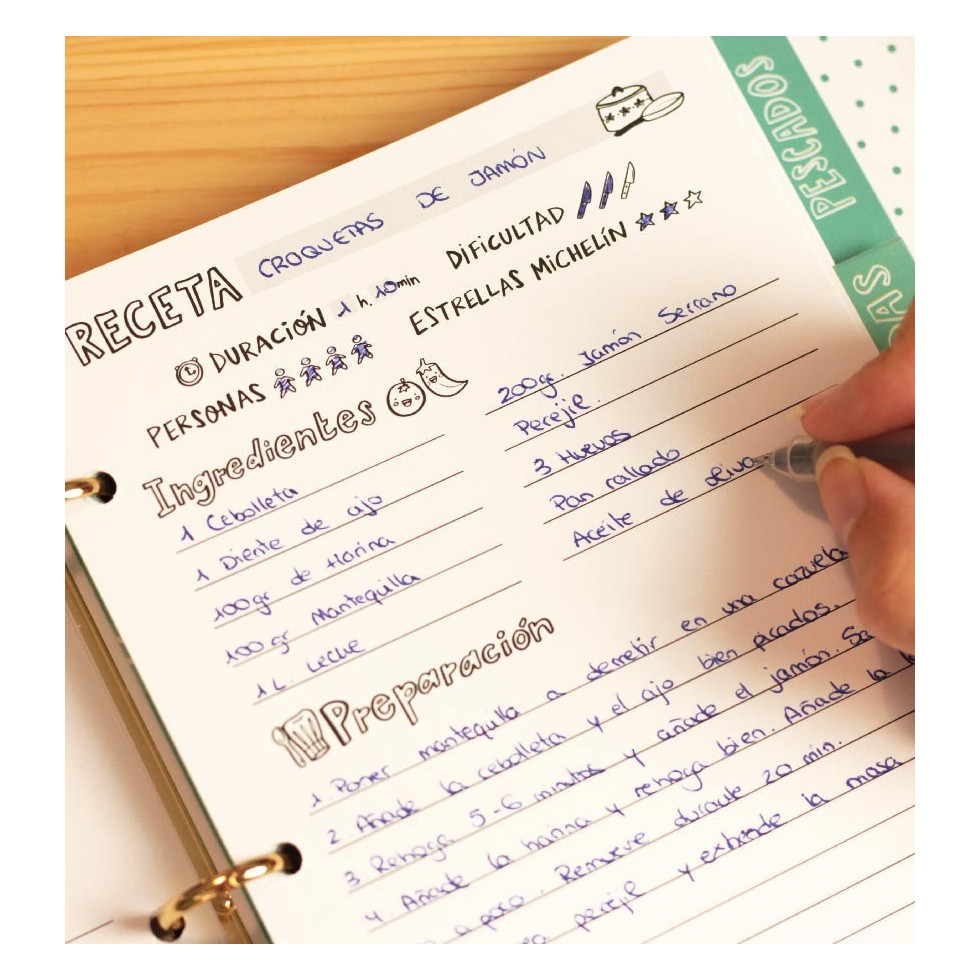 RECETA CROQUETAS DE JAMÓN
DURACIÓN 1 h. 10 min DIFICULTAD
PERSONAS ESTRELLAS MICHELÍN
Ingredientes
1 Cebolleta
1 Diente de ajo
100gr de Harina
100 gr Mantequilla
1 L. Leche
200gr. Jamón Serrano
Perejil.
3 Huevos
Pan rallado
Aceite de oliva
Preparación
1. Poner mantequilla a derretir en una cazuela
2. Añade la cebolleta y el ajo bien picados.
3 Rehoga 5-6 minutos y añade el jamón.
4. Añade la harina y rehoga bien. Añade la
a poco. Remueve durante 20 min.
perejil y extiende la masa
PESCADOS